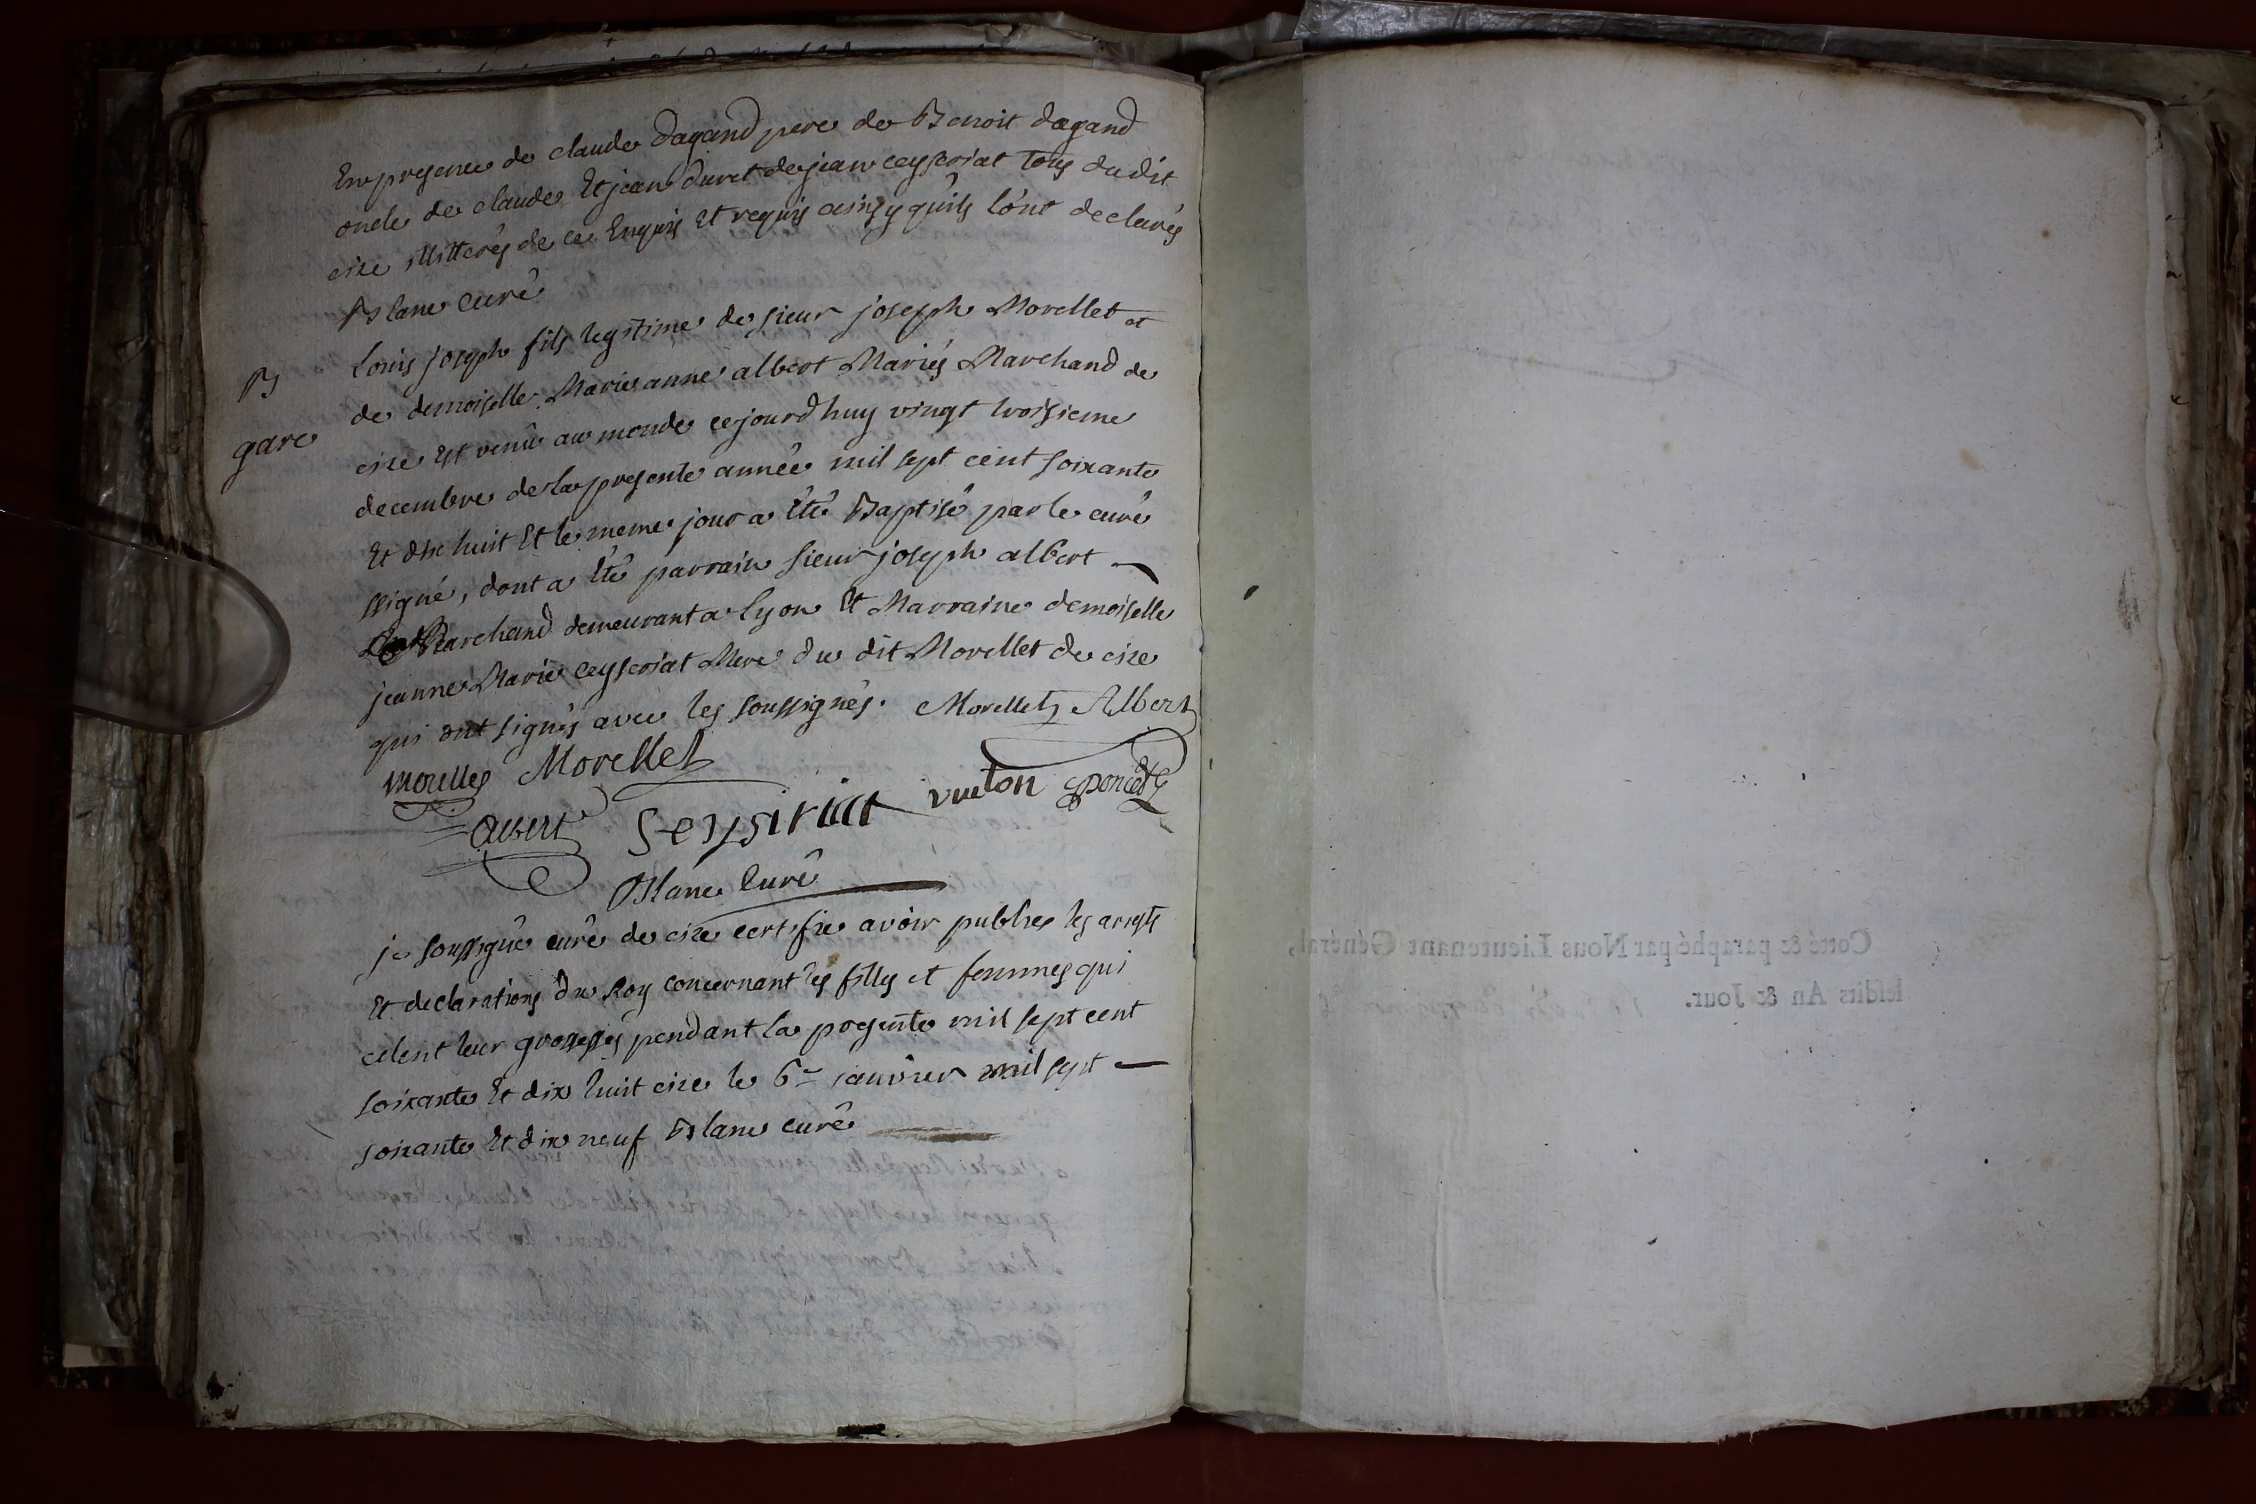 En presence de claude dagand pere de Benoit dagand
oncle de claude Et jean duret de jean ceyseriat tous dudit
cize illitterés de ce Enquis Et requis ainsy quils l'ont declarés
Blanc curé
B
gare
Louis joseph fils legitime de sieur joseph Morellet et
de demoiselle Marieanne albert Mariés Marchand de
cize Est venû au monde cejourdhuy vingt troisieme
decembre de la presente année mil sept cent soixante
Et dix huit Et le meme jour a Eté Baptisé par le curé
ssigné, dont a Eté parrain sieur joseph albert
Marchand demeurant a Lyon Et Marraine demoiselle
jeanne Marie ceyseriat Mere du dit Morellet de cize
qui ont signés avec les soussignés. Morellet Albert
Morellet
vueton poncet
albert Seysiriat
Blanc Curé
je soussigné curé de cize certifie avoir publiés les arrests
Et declarations du Roy concernant les filles et femmes qui
celent leur grossesses pendant la presente mil sept cent
soixante Et dix huit cize le 6e janvier mil sept
soixante Et dix neuf Blanc curé
Cotté & paraphé par Nous Lieutenant Général,
lesdits An & Jour.